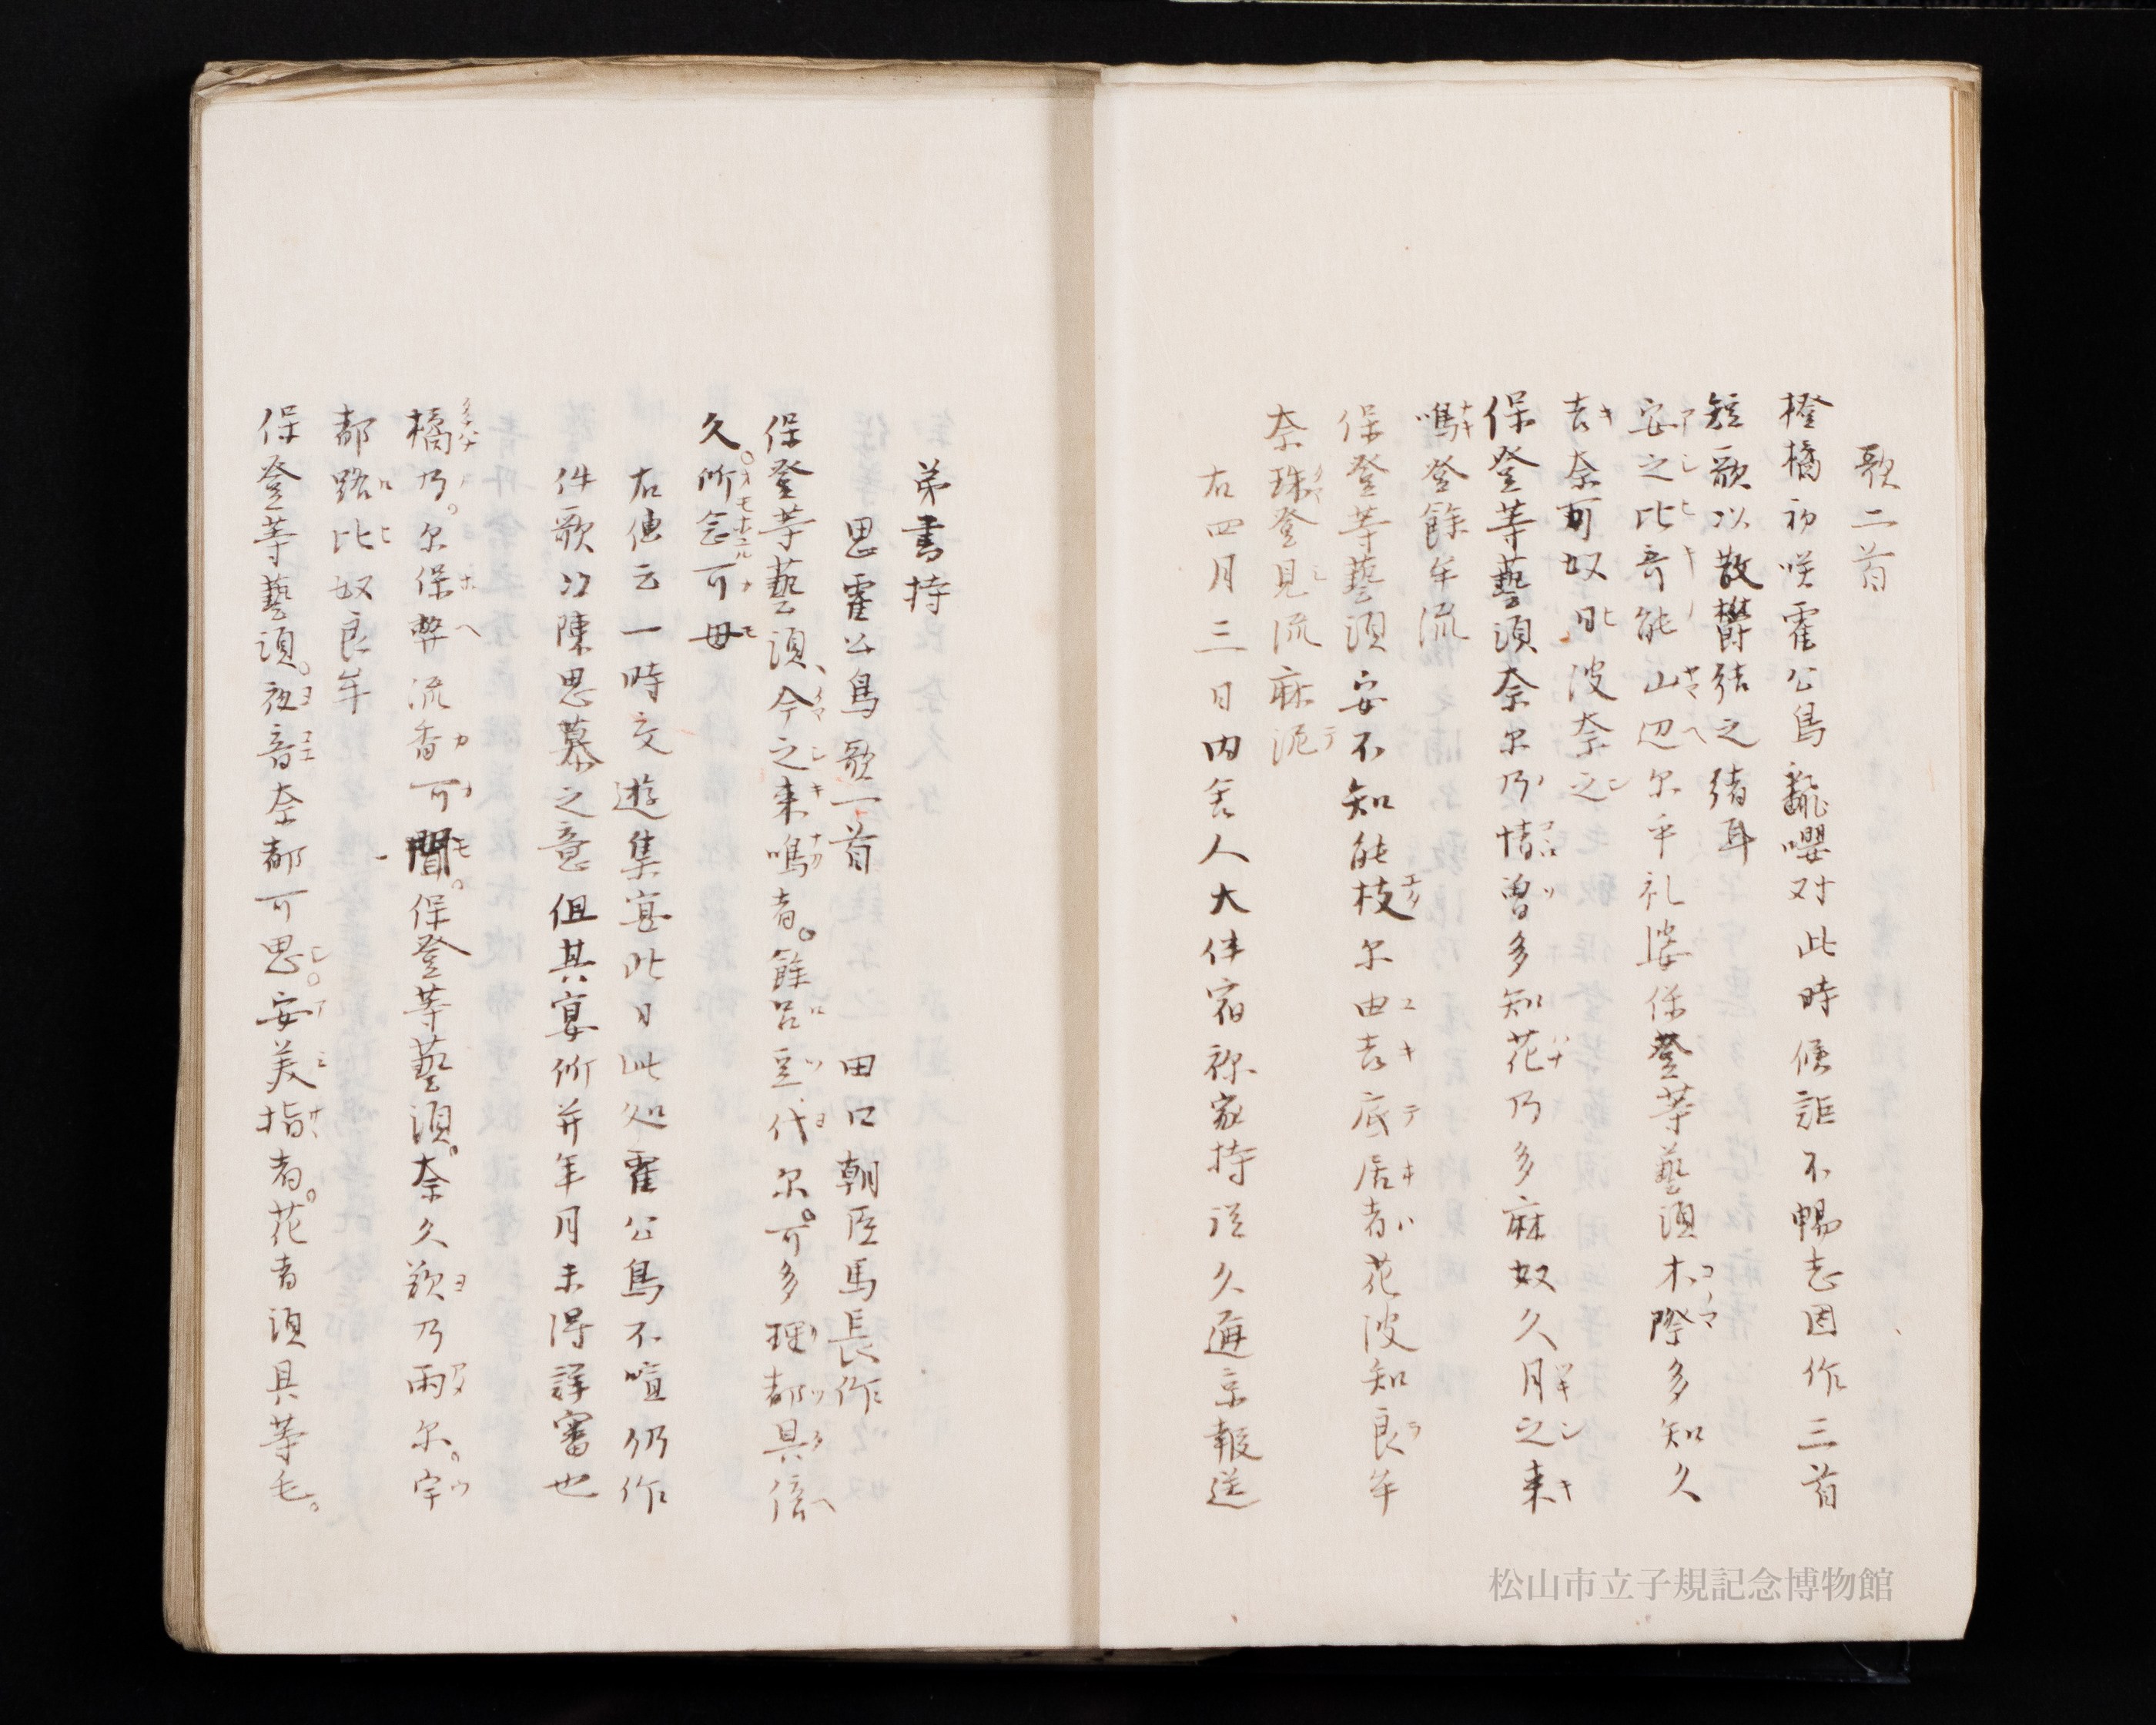 歌二首
橙橘初咲霍公鳥飜嚶対此時候詎不暢志因作三首
短歌以散欝結之緒耳
安之比奇能山辺尓乎礼婆保登等藝須木際多知久
吉奈可奴日波奈之
保登等藝須奈尓乃情曽多知花乃多麻奴久月之来
鳴登餘牟流
保登等藝須安不知能枝尓由吉底居者花波知良牟
奈珠登見流麻泥
右四月三日内舎人大伴宿祢家持従久邇京報送
弟書持
思霍公鳥歌一首 田口朝臣馬長作
保登等藝須、今之来鳴者。餘呂豆代尓。可多理都具倍
久。所念可母
右伝云一時交遊集宴此日此処霍公鳥不喧仍作
件歌以陳思慕之意但其宴所并年月未得詳審也
橘乃。尓保弊流香可聞。保登等藝須。奈久欲乃雨尓。宇
都路比奴良牟
保登等藝須。夜音奈都可思。安美指者。花者須具等毛。
松山市立子規記念博物館